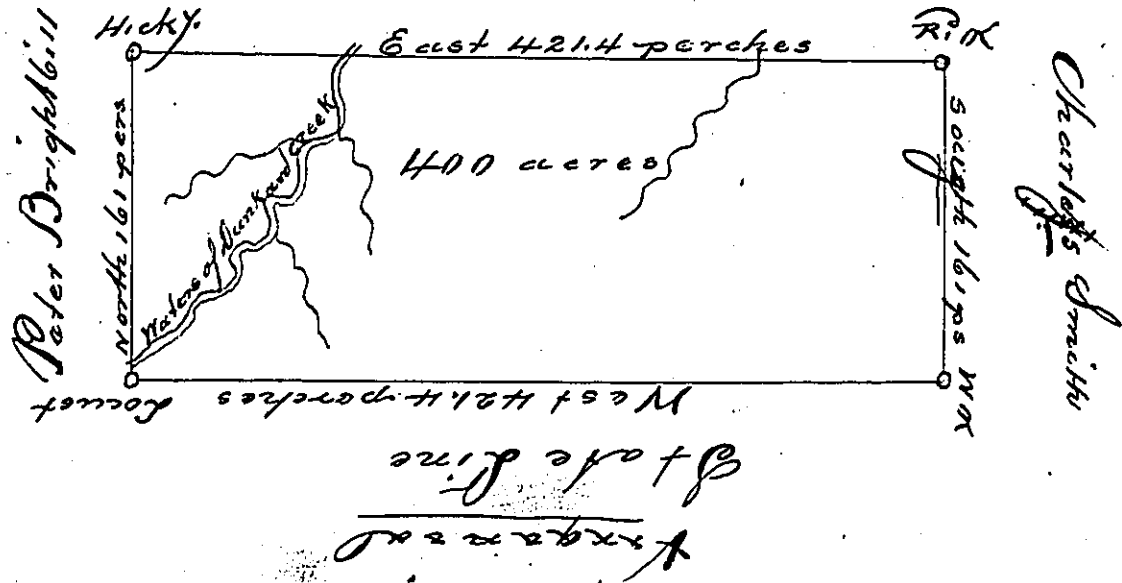 Hicky.
East 421.4 perches
R: OK
Peter Brightbill
North 161 pers
Waters of Dunkard Creek
400 acres
South 161 ps
Charles Smith
Locust
West 421.4 perches
W OK
State Line